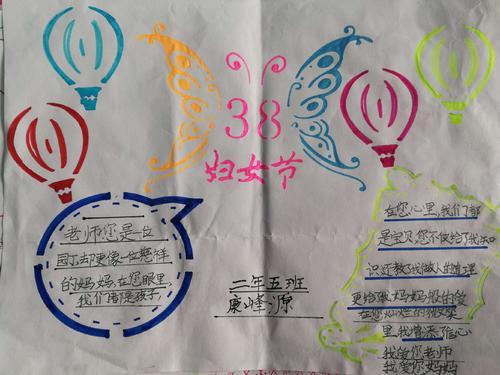 38
妇女节
老师您是一位
园丁却更像一位慈祥
的妈妈在您眼里
我们皆是孩子,
二年五班
康峰源
在您心里,我们都
是宝贝您不仅给了我知
识还教了我做人的道理
更给了我妈妈般的爱
在您灿烂的微笑
里,我增添了信心
我爱您老师
我爱您妈妈